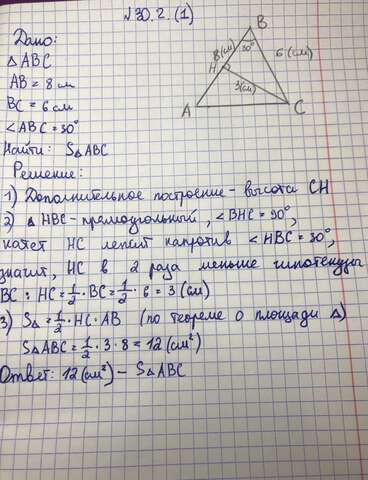 №30.2.(1)
Дано:
△ABC
AB = 8 см
BC = 6 см
∠ABC = 30°
Найти: S△ABC
B
8(см)
30°
6(см)
H
3(см)
A
C
Решение:
1) Дополнительное построение - высота CH
2) △HBC - прямоугольный, ∠BHC = 90°,
катет HC лежит напротив ∠HBC = 30°,
значит, HC в 2 раза меньше гипотенузы
BC: HC = 1/2 · BC = 1/2 · 6 = 3 (см)
3) S△ = 1/2 · HC · AB (по теореме о площади △)
S△ABC = 1/2 · 3 · 8 = 12 (см²)
Ответ: 12 (см²) - S△ABC